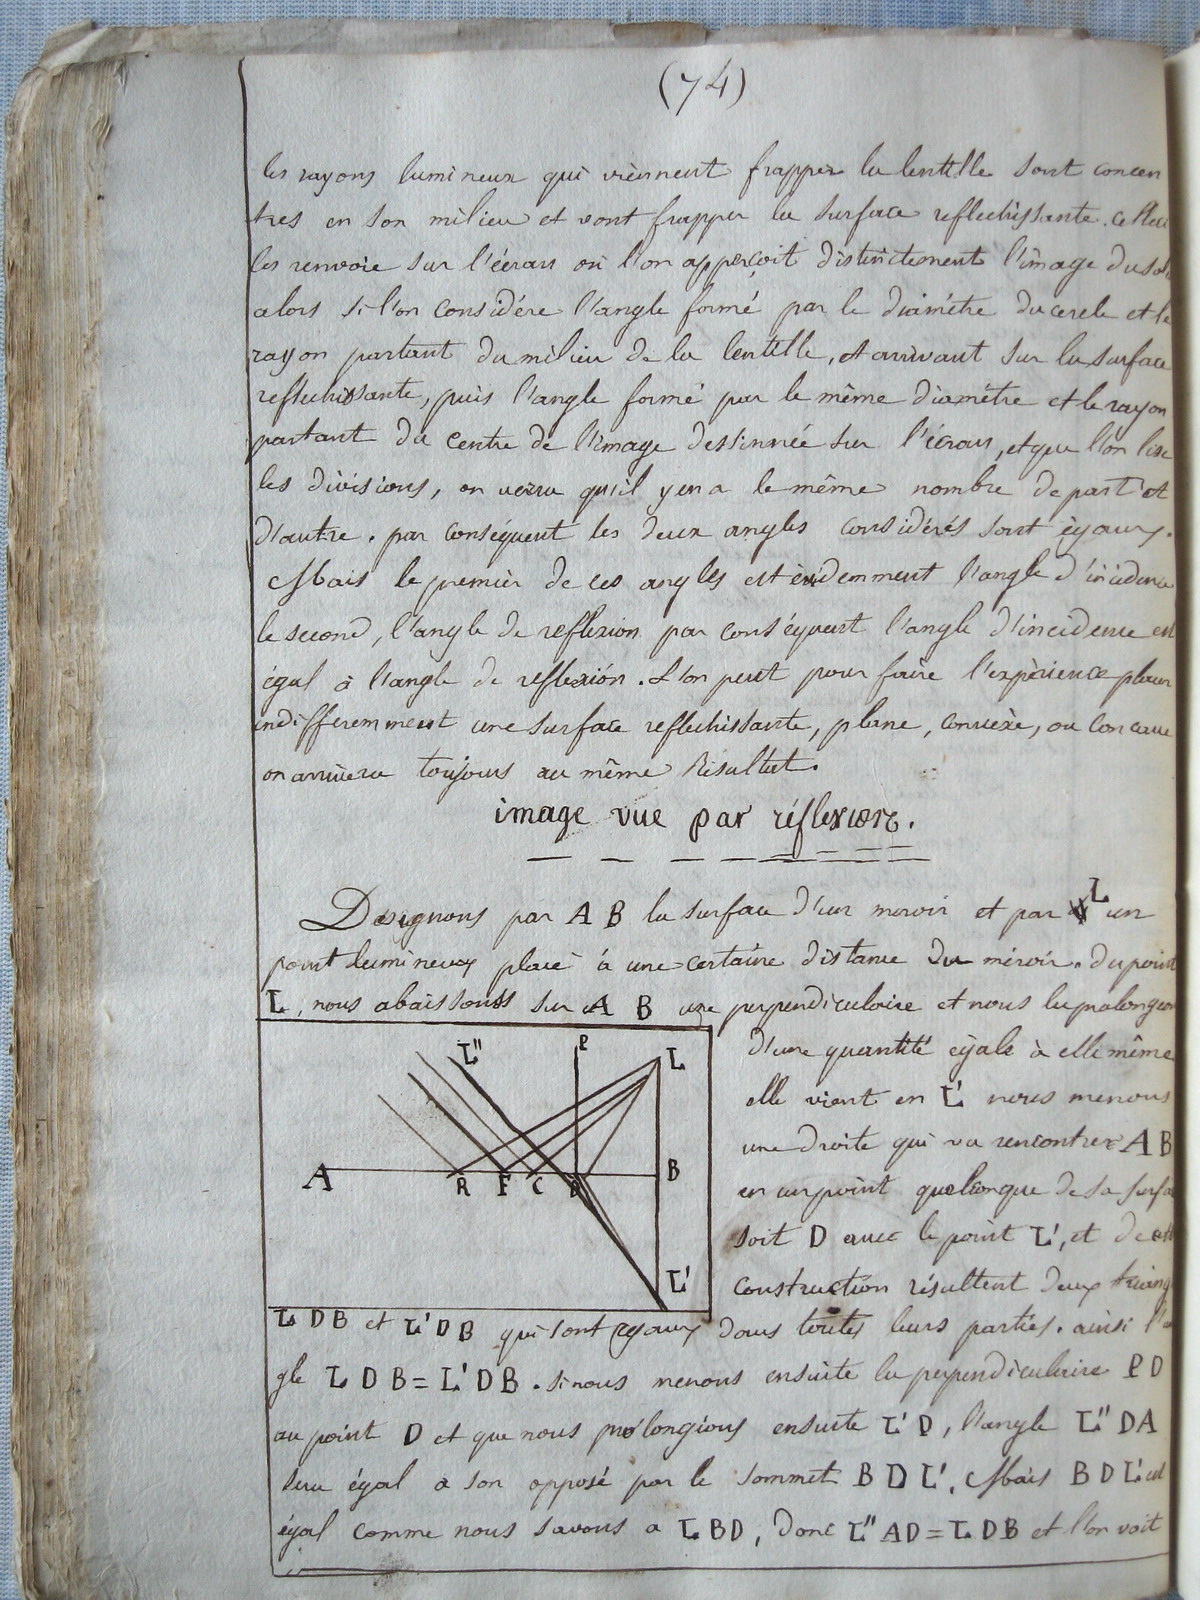 (74)
les rayons lumineux qui viennent frapper la lentille sont concen
tres en son milieu et vont frapper la surface reflechissante. celle ci
les renvoie sur l'écran où l'on apperçoit distinctement l'image du sol
alors si l'on considére l'angle formé par le diamétre du cercle et le
rayon partant du milieu de la lentille, et arrivant sur la surface
reflechissante, puis l'angle formé par le même diamétre et le rayon
partant du centre de l'image dessinnée sur l'écran, et que l'on lise
les divisions, on verra qu'il y en a le même nombre de part et
d'autre. par conséquent les deux angles considérés sont égaux.
Mais le premier de ces angles est évidemment l'angle d'incidence
le second, l'angle de reflexion par conséquent l'angle d'incidence est
égal à l'angle de reflexion. L'on peut pour faire l'expèrience placer
indifferemment une surface reflechissante, plane, convèxe, ou concave
on arrivera toujours au même résultat.
image vue par réflexion.
Designons par A B la surface d'un miroir et par L un
point lumineux placé à une certaine distance du miroir. du point
L, nous abaissons sur A B une perpendiculaire et nous la prolongeon
d'une quantité égale à elle même
elle vient en L' nous menons
une droite qui va rencontrer A B
en un point quelconque de sa surfa
soit D avec le point L', et de cett
construction résultent deux triang
L DB et L'DB qui sont egaux dans toutes leurs parties. ainsi l'an
gle L D B = L'DB. si nous menons ensuite la perpendiculaire P D
au point D et que nous prolongions ensuite L'D, l'angle L'' DA
sera égal a son opposé par le sommet B D L'. Mais B D L' est
égal comme nous savons a L BD, donc L'' AD = L DB et l'on voit
L'' P L
A R F C D B
L'